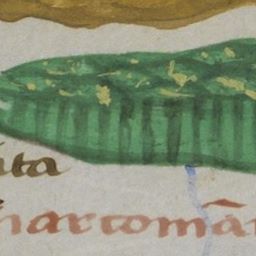 ita
marcomā